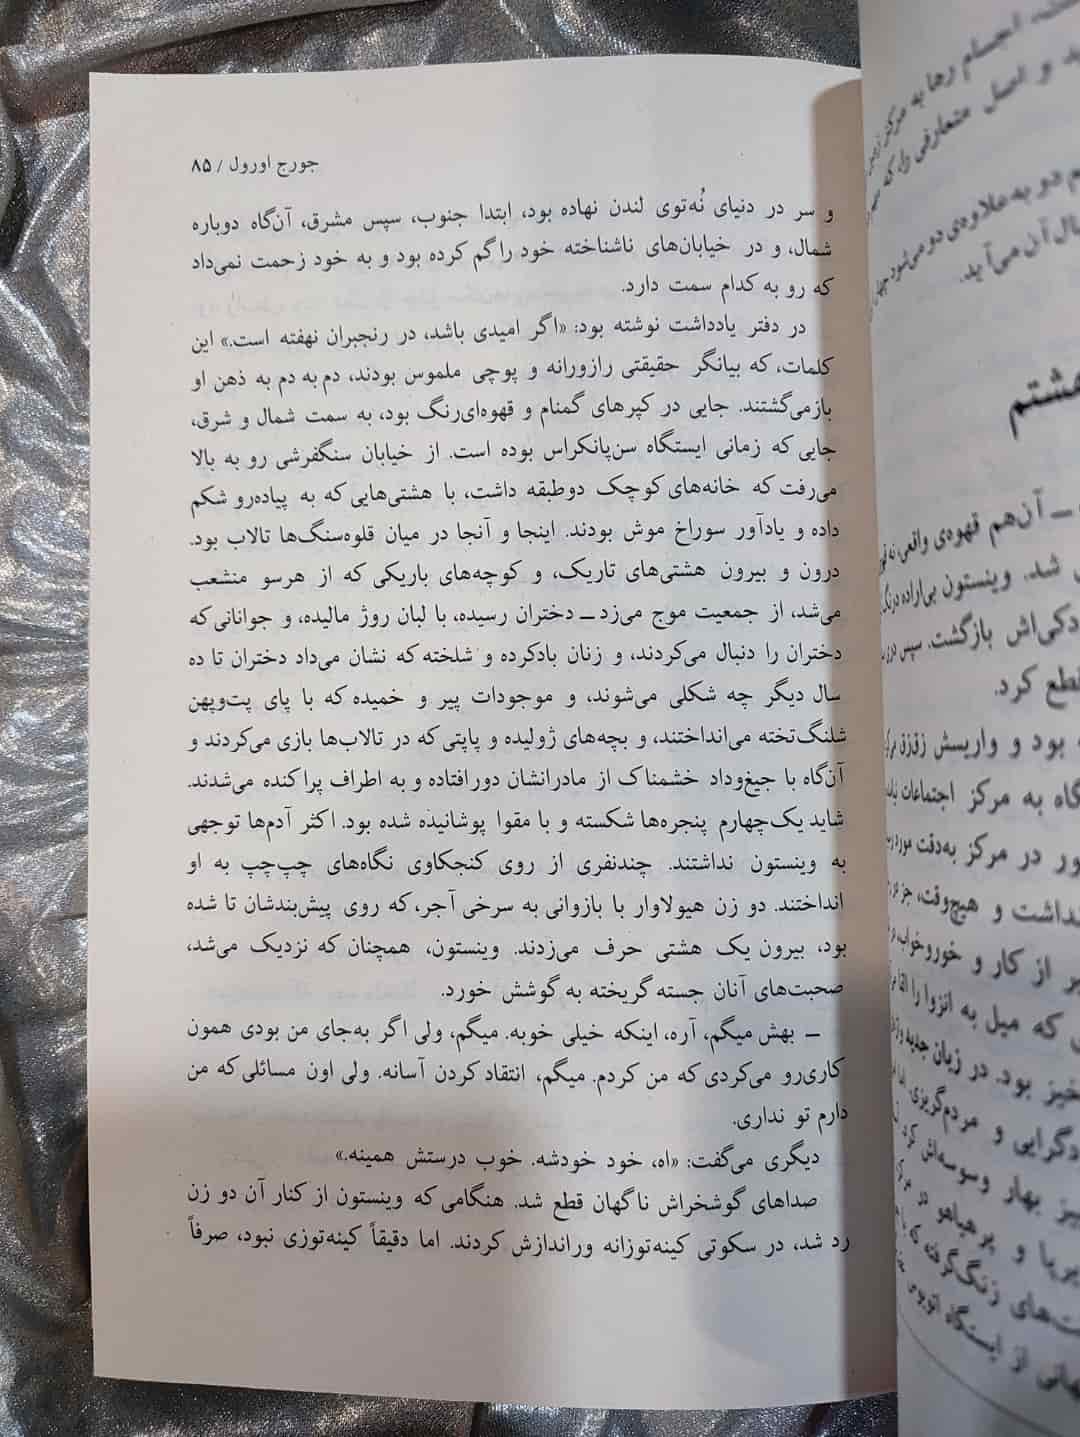 جورج اورول / ۸۵
و سر در دنیای نُه‌توی لندن نهاده بود، ابتدا جنوب، سپس مشرق، آن‌گاه دوباره
شمال، و در خیابان‌های ناشناخته خود را گم کرده بود و به خود زحمت نمی‌داد
که رو به کدام سمت دارد.
در دفتر یادداشت نوشته بود: «اگر امیدی باشد، در رنجبران نهفته است.» این
کلمات، که بیانگر حقیقتی رازورانه و پوچی ملموس بودند، دم به دم به ذهن او
بازمی‌گشتند. جایی در کپرهای گمنام و قهوه‌ای‌رنگ بود، به سمت شمال و شرق،
جایی که زمانی ایستگاه سن‌پانکراس بوده است. از خیابان سنگفرشی رو به بالا
می‌رفت که خانه‌های کوچک دوطبقه داشت، با هشتی‌هایی که به پیاده‌رو شکم
داده و یادآور سوراخ موش بودند. اینجا و آنجا در میان قلوه‌سنگ‌ها تالاب بود.
درون و بیرون هشتی‌های تاریک، و کوچه‌های باریکی که از هرسو منشعب
می‌شد، از جمعیت موج می‌زد ــ دختران رسیده، با لبان روژ مالیده، و جوانانی که
دختران را دنبال می‌کردند، و زنان بادکرده و شلخته که نشان می‌داد دختران تا ده
سال دیگر چه شکلی می‌شوند، و موجودات پیر و خمیده که با پای پت‌وپهن
شلنگ‌تخته می‌انداختند، و بچه‌های ژولیده و پاپتی که در تالاب‌ها بازی می‌کردند و
آن‌گاه با جیغ‌وداد خشمناک از مادرانشان دور افتاده و به اطراف پراکنده می‌شدند.
شاید یک‌چهارم پنجره‌ها شکسته و با مقوا پوشانیده شده بود. اکثر آدم‌ها توجهی
به وینستون نداشتند. چندنفری از روی کنجکاوی نگاه‌های چپ‌چپ به او
انداختند. دو زن هیولاوار با بازوانی به سرخی آجر، که روی پیش‌بندشان تا شده
بود، بیرون یک هشتی حرف می‌زدند. وینستون، همچنان که نزدیک می‌شد،
صحبت‌های آنان جسته گریخته به گوشش خورد.
ــ بهش میگم، آره، اینکه خیلی خوبه. میگم، ولی اگر به‌جای من بودی همون
کاری‌رو می‌کردی که من کردم. میگم، انتقاد کردن آسانه. ولی اون مسائلی که من
دارم تو نداری.
دیگری می‌گفت: «اه، خود خودشه. خوب درستش همینه.»
صداهای گوشخراش ناگهان قطع شد. هنگامی که وینستون از کنار آن دو زن
رد شد، در سکوتی کینه‌توزانه وراندازش کردند. اما دقیقاً کینه‌توزی نبود، صرفاً
اجسام رها به مرکز زمین
و اصل متعارفی را، که
دو به علاوه‌ی دو می‌شود چهار
آن می‌آید.
هشتم
ــ آن‌هم قهوه‌ی واقعی، نه
شد. وینستون بی‌اراده درنگ
بازگشت. سپس در و
قطع کرد.
بود و واریسش زق‌زق
به مرکز اجتماعات
در مرکز به‌دقت مورد
نداشت و هیچ‌وقت، جز در
از کار و خوروخواب، در
که میل به انزوا را القا
بود. در زبان جدید واژه
و مردم‌گریزی.
بهار وسوسه‌اش کرد.
و پر هیاهو در مرکز
زنگ‌گرفته که با
از ایستگاه اتوبوس